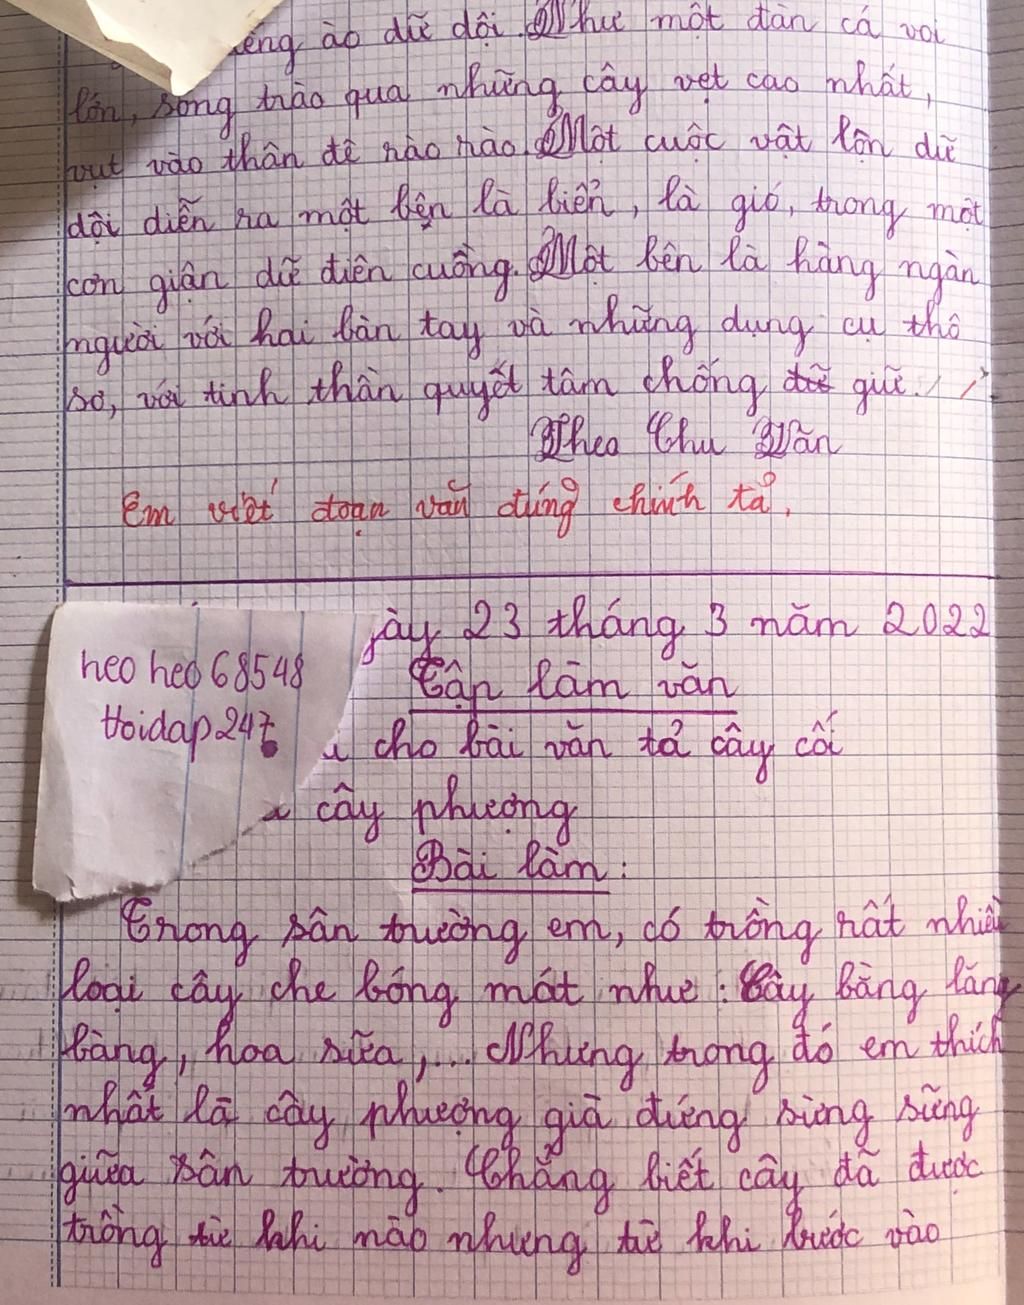 ào dữ dội. Như một đàn cá voi
lớn, sóng trào qua những cây vẹt cao nhất,
vụt vào thân đê rào rào. Một cuộc vật lộn dữ
dội diễn ra một bên là biển, là gió, trong một
cơn giận dữ điên cuồng. Một bên là hàng ngàn
người với hai bàn tay và những dụng cụ thô
sơ, với tinh thần quyết tâm chống giữ.
Theo Chu Văn
Em viết đoạn văn đúng chính tả.
ày 23 tháng 3 năm 2022
heo heo 68548
Tập làm văn
hoidap247
cho bài văn tả cây cối
cây phượng
Bài làm:
Trong sân trường em, có trồng rất nhiều
loại cây che bóng mát như: Cây bằng lăng
bàng, hoa sữa,... Nhưng trong đó em thích
nhất là cây phượng già đứng sừng sững
giữa sân trường. Chẳng biết cây đã được
trồng từ khi nào nhưng từ khi bước vào